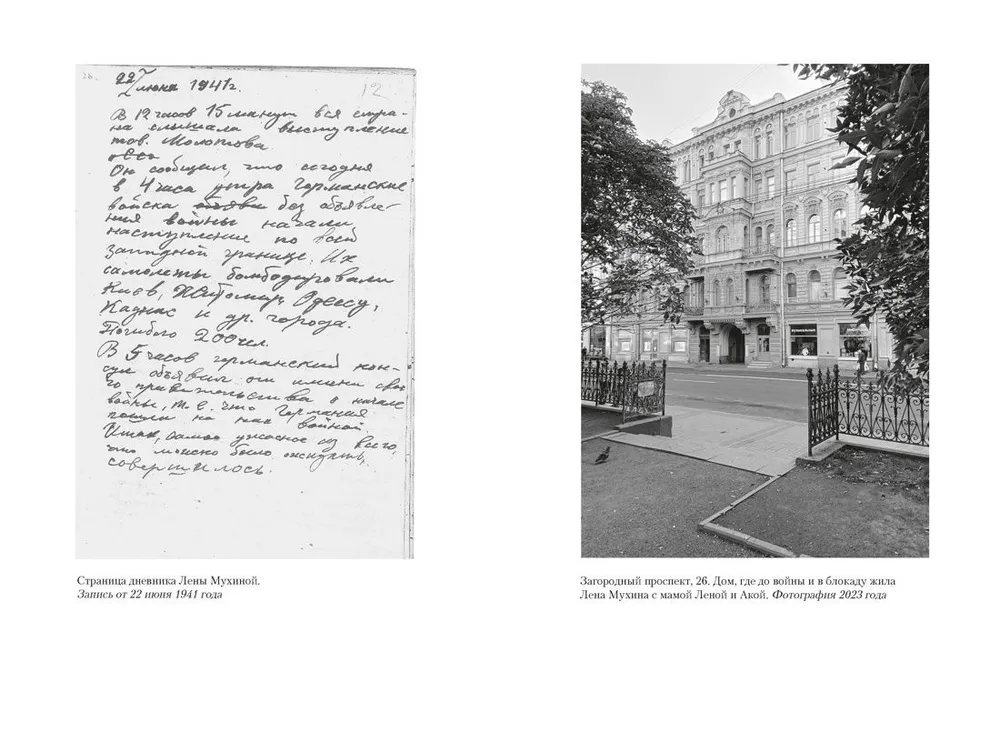 36.
22/
июня 1941г.
12
В 12 часов 15 минут вся стра-
на слышала выступление
тов. Молотова.
Он сообщил, что сегодня
в 4 часа утра Германские
войска объяви без объявле-
ния войны начали
наступление по всей
западной границе. Их
самолеты бомбодировали
Киев, Житомир, Одессу,
Каунас и др. города.
Погибло 200 чел.
В 5 часов германский кон-
сул объявил от имени свое-
го правительства о начале
войны, т. е. что Германия
пошла на нас войной.
Итак, самое ужасное из всего,
что можно было ожидать,
совершилось.
Страница дневника Лены Мухиной.
Запись от 22 июня 1941 года
МУЗЫКАЛЬНЫЕ
Загородный проспект, 26. Дом, где до войны и в блокаду жила
Лена Мухина с мамой Леной и Акой. Фотография 2023 года